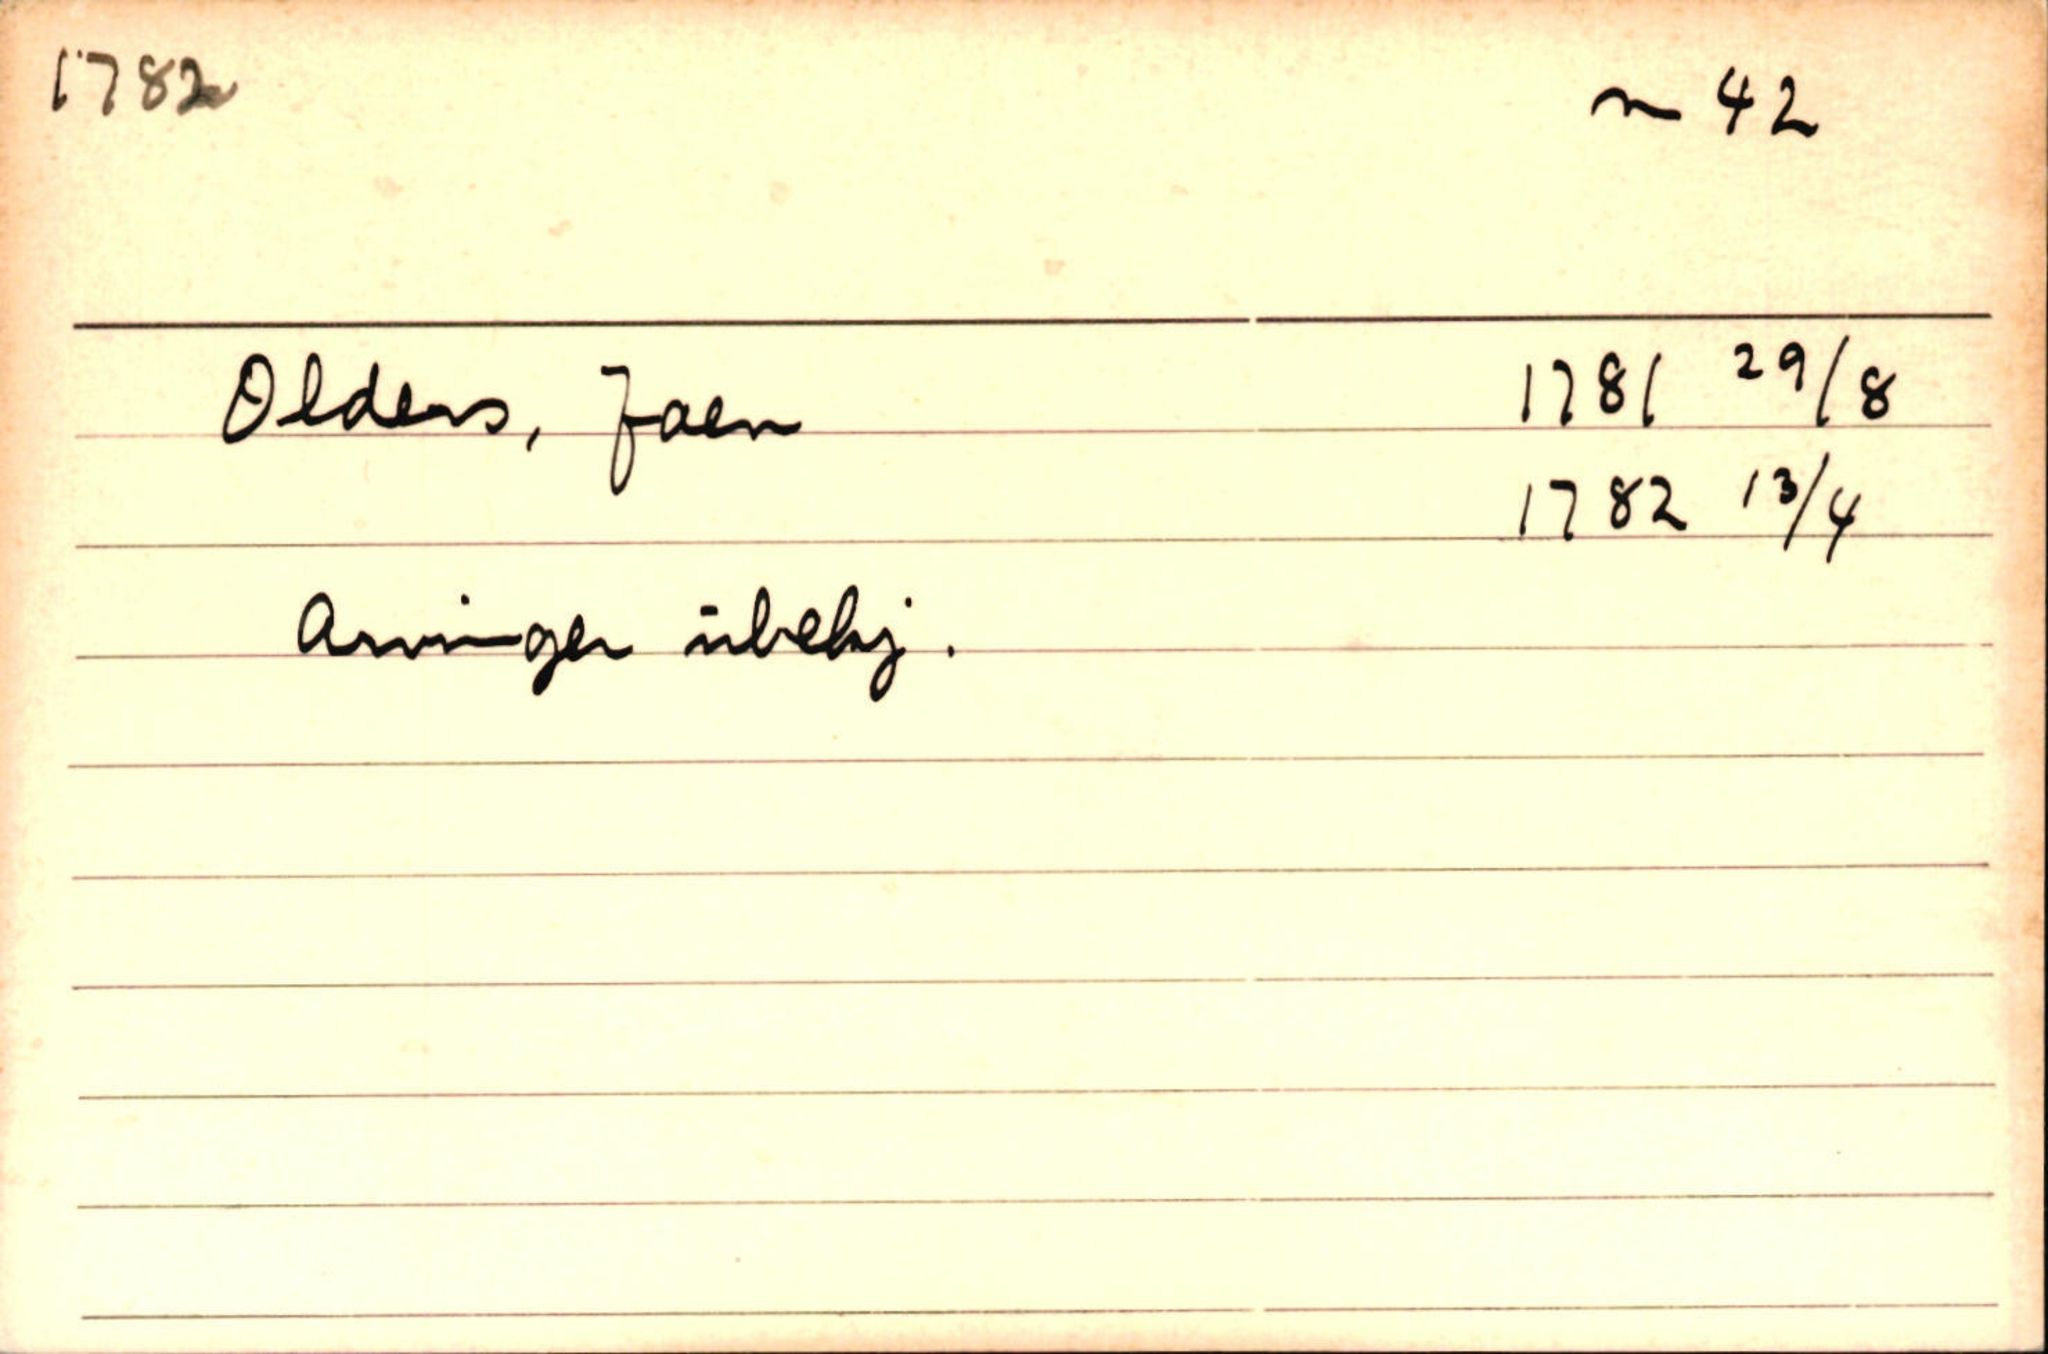 1782
n 42
Olders, Jaen 1781 29/8
1782 13/4
Arvinger ubekj.